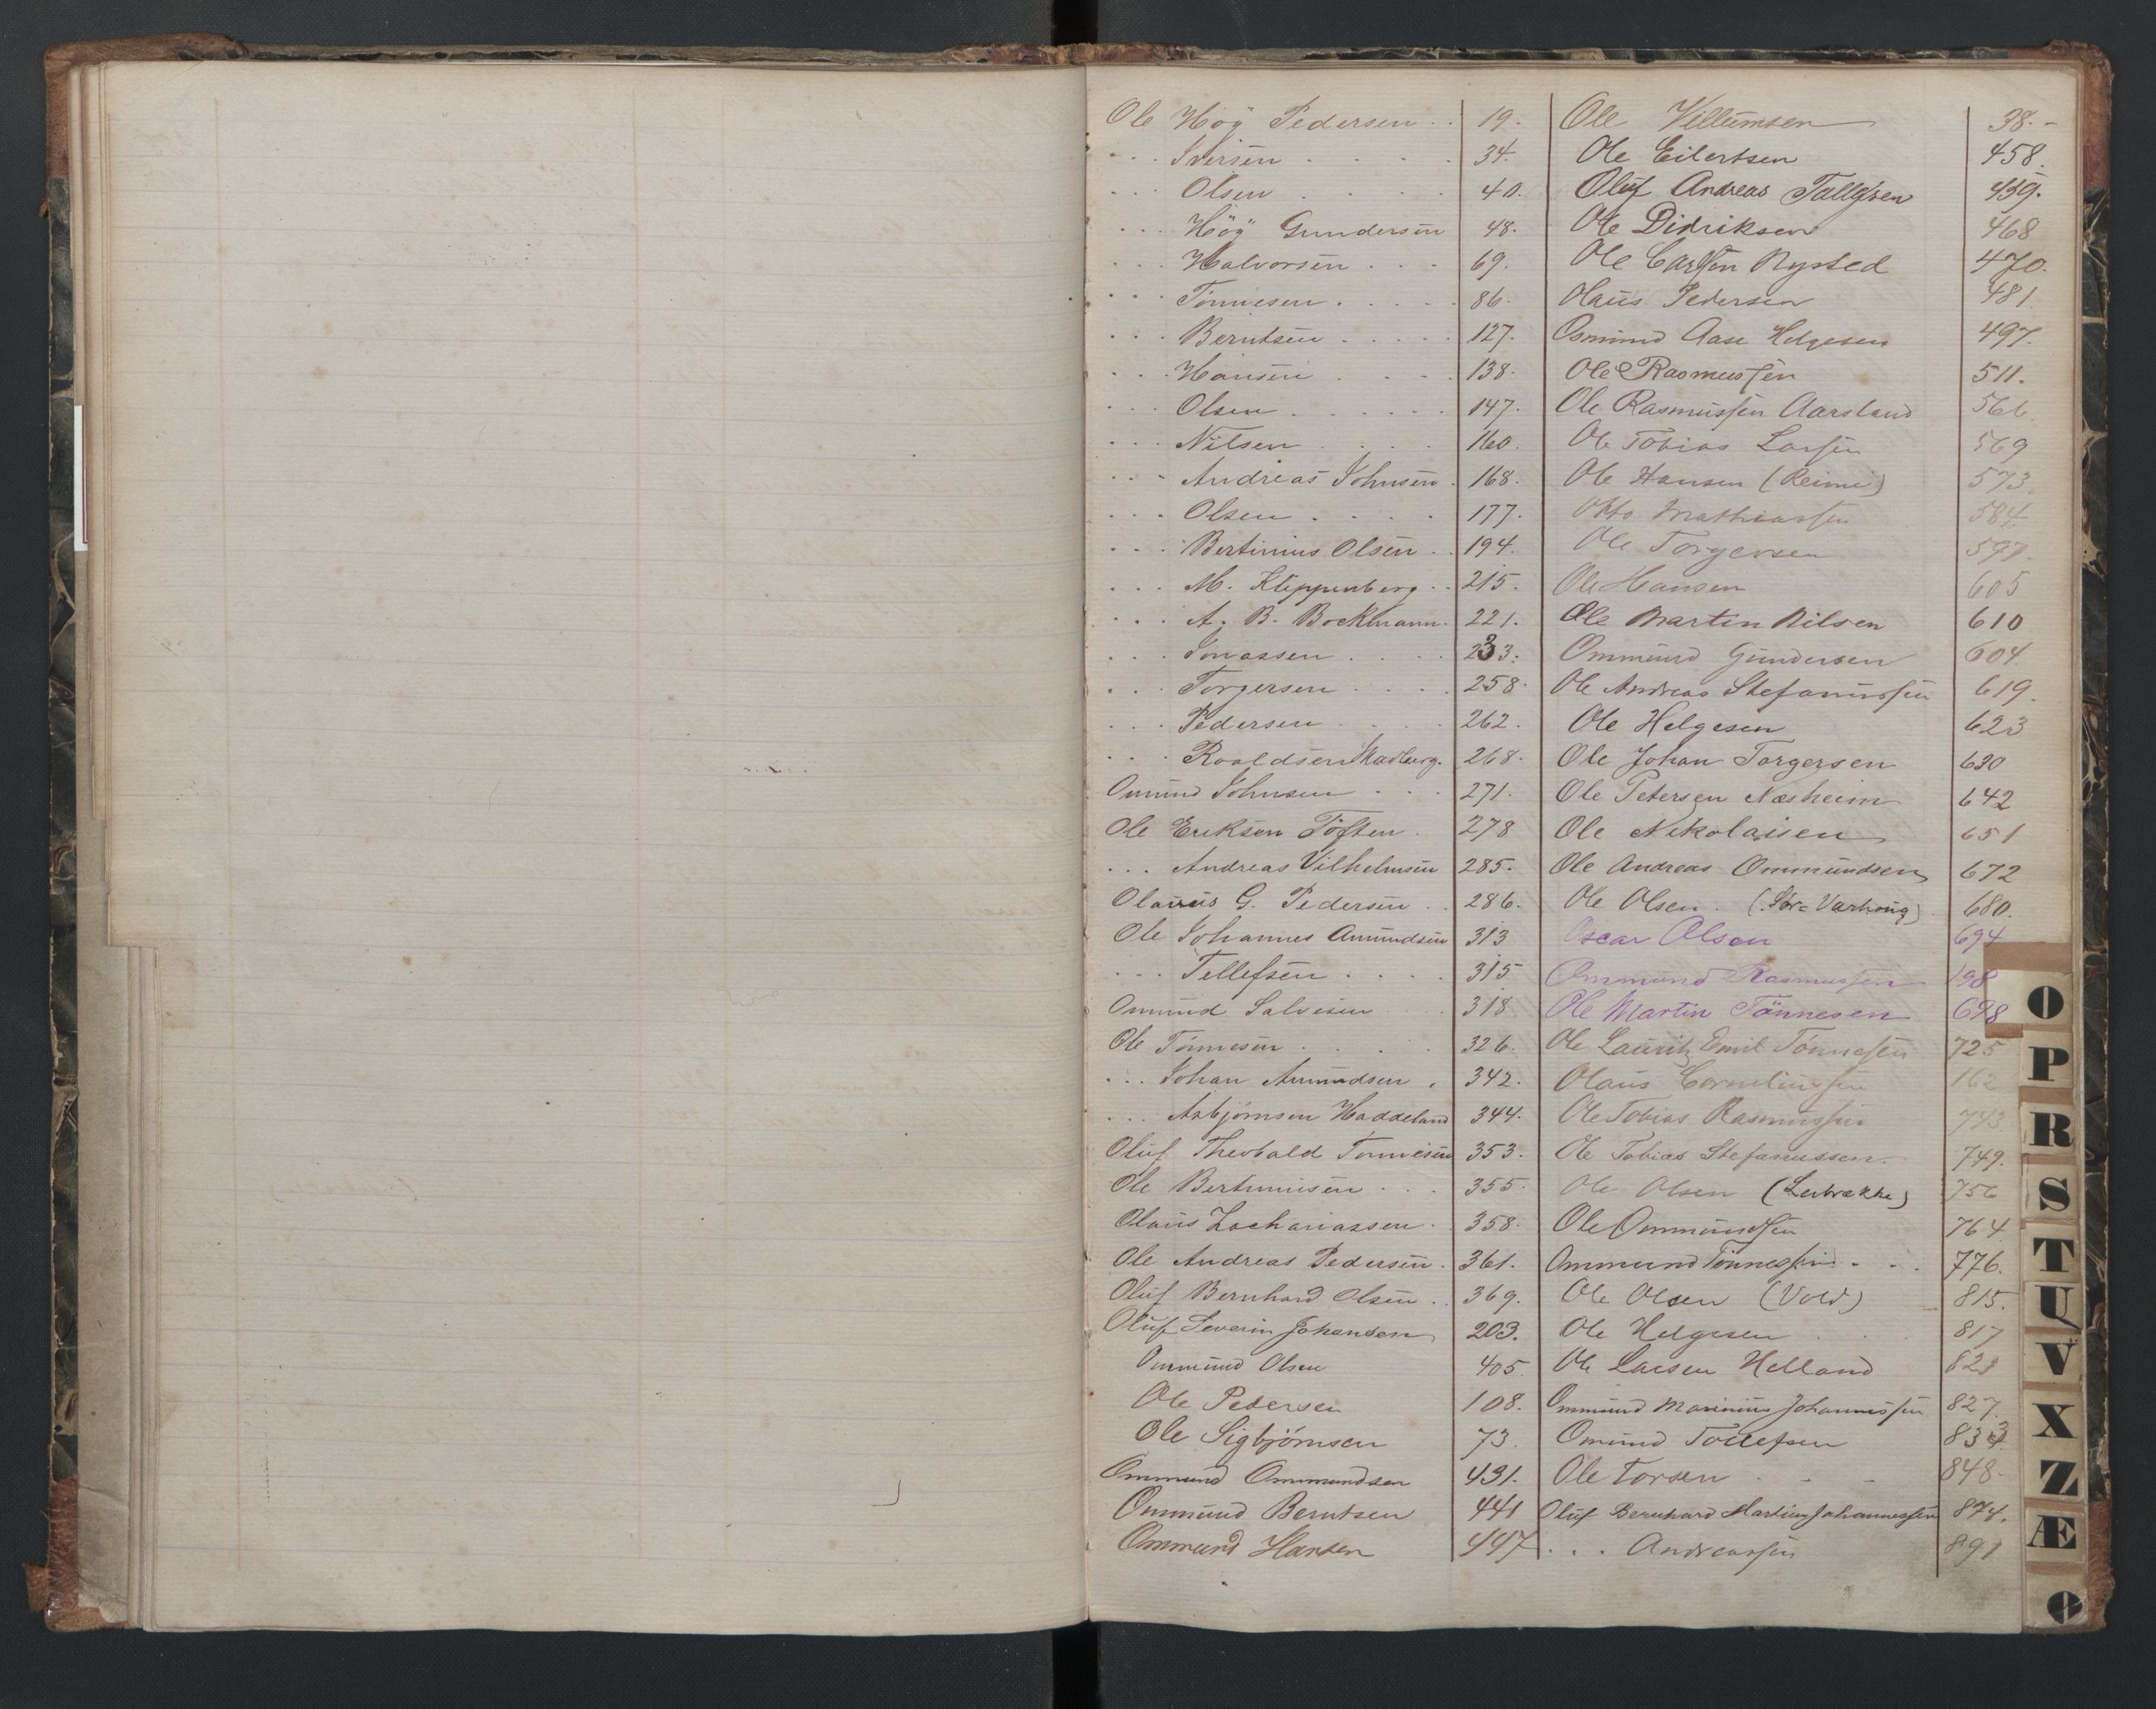 Ole Höy Pedersen . . 19.
. . . Iversen . . . . 34.
. . . Olsen . . . . 40.
. . . Höÿ Gundersen 48.
. . . Halvorsen . . . 69.
. . . Tönnesen . . . . . 86.
. . . Berntsen . . . . . 127.
. . . Hansen . . . . 138.
. . . Olsen . . . . . . 147.
. . . Nilsen . . . . 160.
. . . Andreas Johnsen . 168.
. . . Olsen . . . . 177.
. . . Bertinius Olsen . . 194.
. . . M. Kleppenberg . . 215.
. . . A. B. Bockmann . 221.
. . . Jonassen . . . . 233.
. . . Torgersen . . . . 258.
. . . Pedersen . . . . 262.
. . . Roaldsen Madberg. 268.
Omund Johnsen . . . 271.
Ole Eriksen Töften . 278
. . . Andreas Vilhelmsen 285.
Olaus G. Pedersen . . 286.
Ole Johannes Amundsen 313
. . . Tellefsen . . . . 315
Omund Salvesen . . 318
Ole Tönnesen . . . . . 326.
. . . Johan Amundsen . 342.
. . . Asbjørnsen Haddeland 344.
Oluf Theobald Tönnesen 353.
Ole Bertinusen . . . 355.
Olaus Zachariassen . 358.
Ole Andreas Pedersen . 361.
Oluf Bernhard Olsen . . 369.
Oluf Severin Johansen 203.
Ommund Olsen 405
Ole Pedersen 108.
Ole Sigbjörnsen 73.
Ommund Ommundsen 431.
Ommund Berntsen 441
Ommund Hansen 447
Ole Villumsen 38.-
Ole Eilertsen 458.
Oluf Andreas Tallgren 459.
Ole Didriksen 468
Ole Carlsen Nysted 470.
Olaus Pedersen 481
Osmund Aase Helgesen 497.
Ole Rasmussen 511.
Ole Rasmussen Aarsland 566
Ole Tobias Larsen 569
Ole Hansen (Reime) 573.
Otto Mathiassen 584
Ole Torgersen 597.
Ole Hansen 605
Ole Martin Nilsen 610
Ommund Gundersen 604.
Ole Andreas Stefanussen 619.
Ole Helgesen 623
Ole Johan Torgersen 630
Ole Petersen Næsheim 642
Ole Nikolaisen 651
Ole Andreas Ommundsen 672
Ole Olsen . (Stor= Varhoug) 680.
Oscar Olsen 694
Ommund Rasmussen 198
Ole Martin Tönnesen 698
Ole Lauritz Emil Tönnesen 725
Olaus Corneliussen 162
Ole Tobias Rasmussen 743
Ole Tobias Stefanussen. 749.
Ole Olsen (Lerbrække) 756
Ole Ommundsen 764.
Ommund Tönnessen . . . 776.
Ole Olsen (Vold) 815.
Ole Helgesen . . 817
Ole Larsen Helland 821
Ommund Marinius Johannessen 827.
Omund Tollefsen 833
Ole Torsen . . . 848.
Oluf Bernhard Martin Johannessen 874.
. . . Andreassen 891
O
P
R
S
T
U
V
X
Z
Æ
Ø